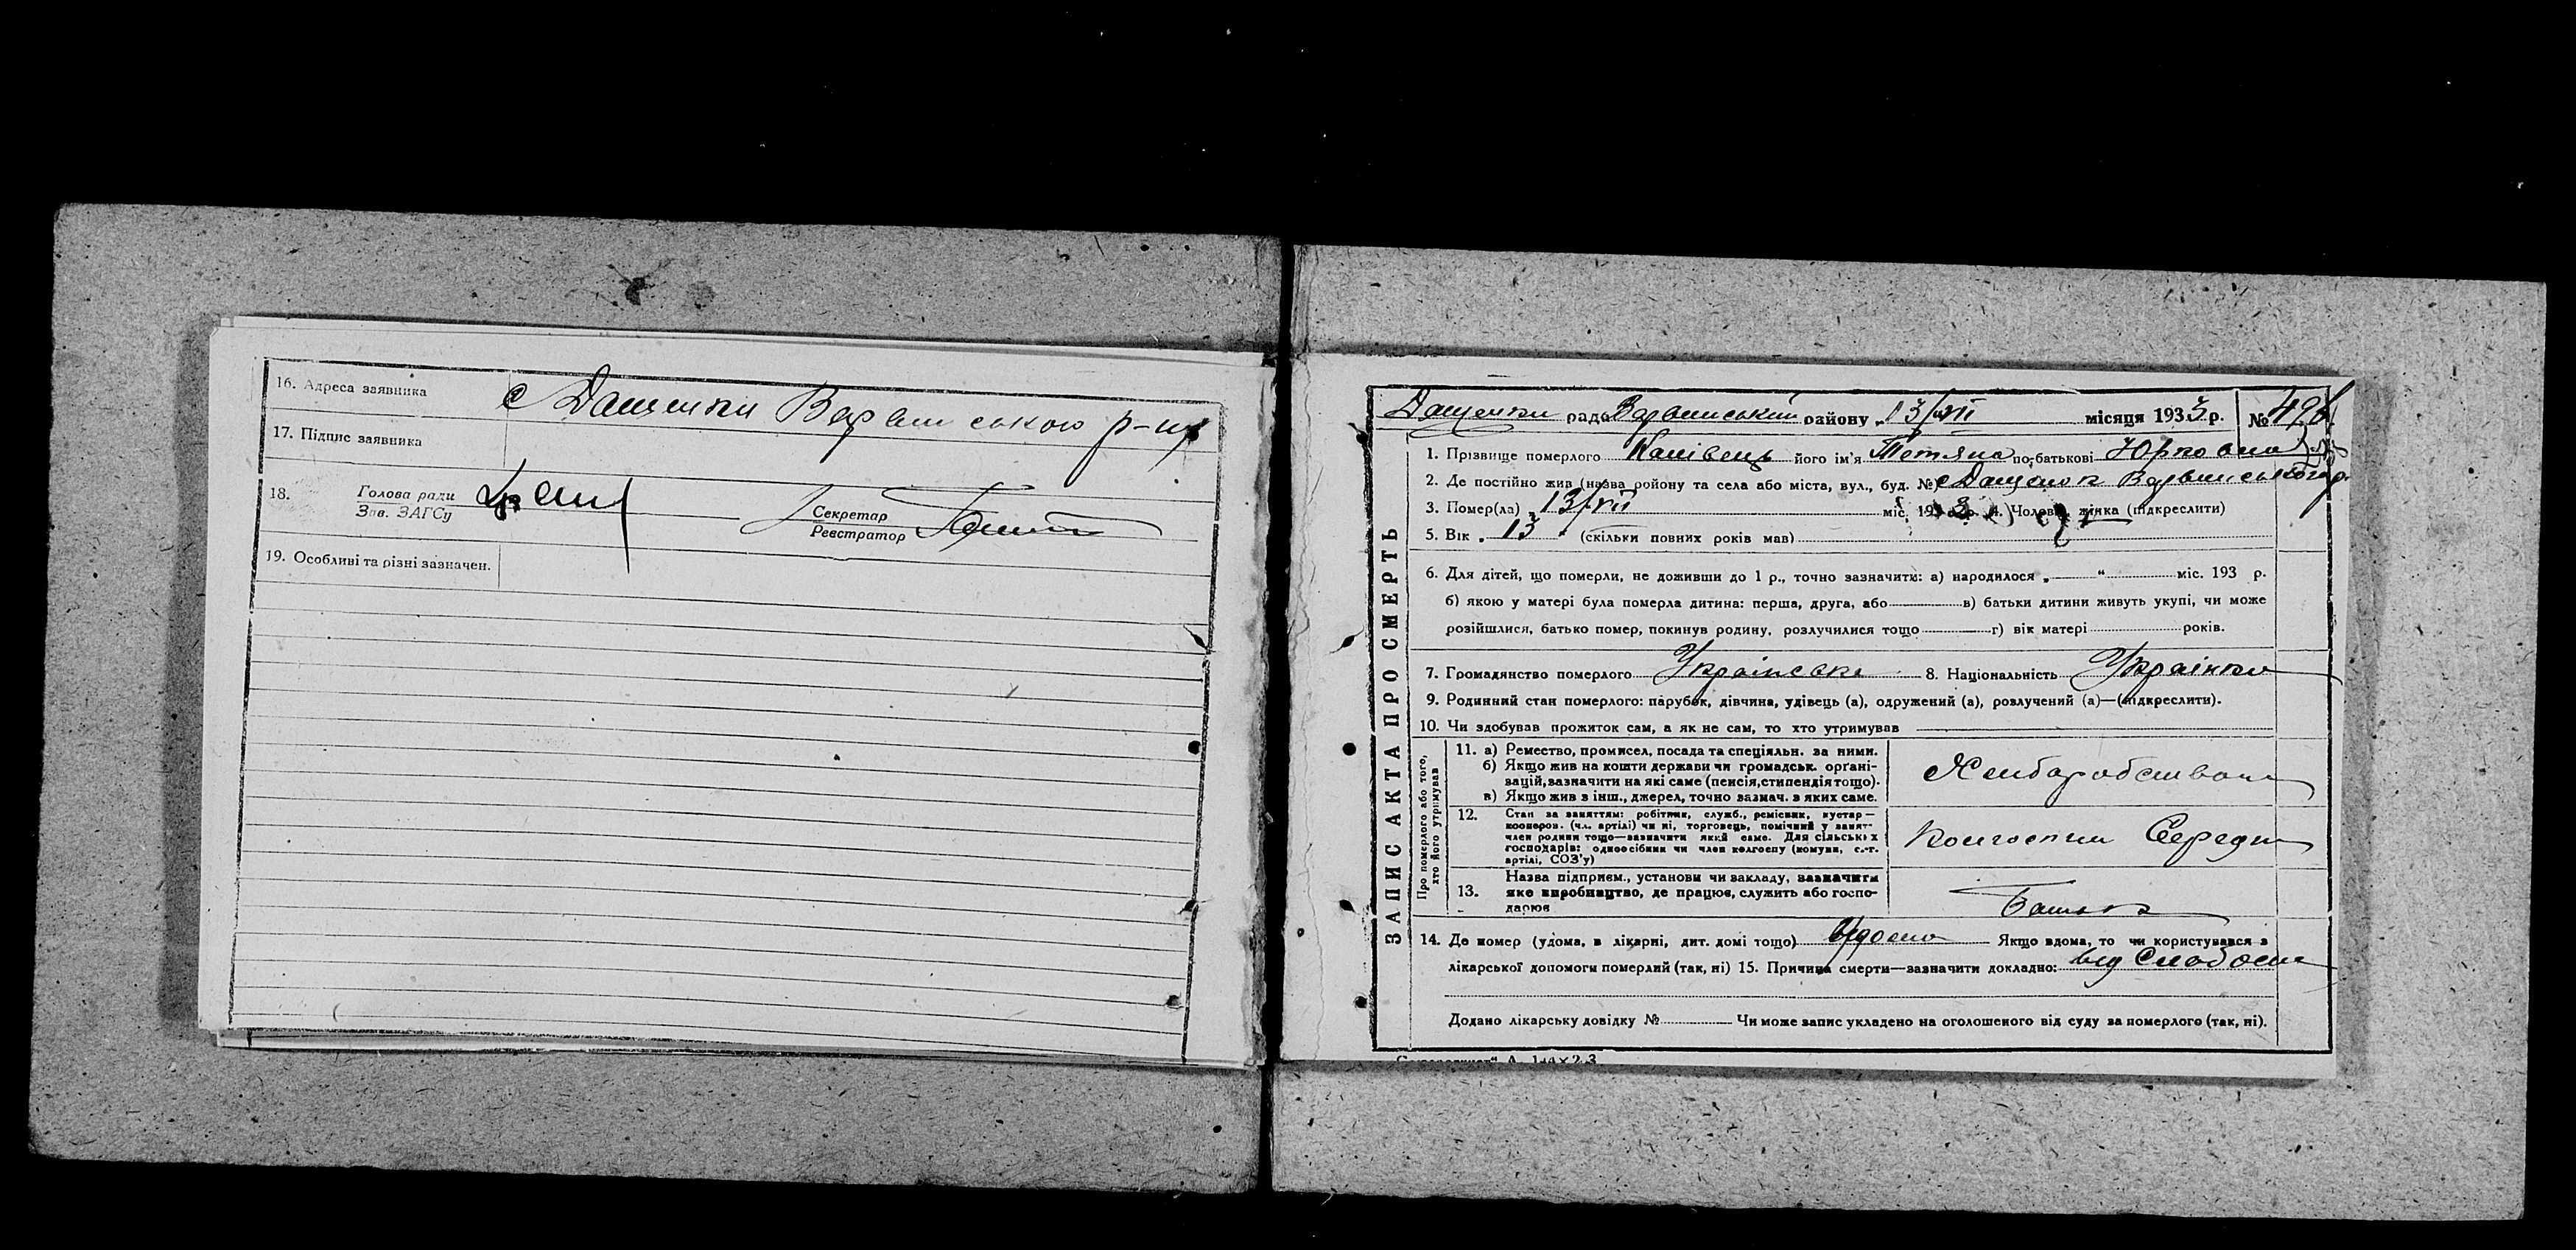 16. Адреса заявника с Дащенки Варвинського р-ну
17. Підпис заявника
18. Голова ради
Зав. ЗАГСу
Секретар
Реєстратор
19. Особливі та різні зазначен.
ЗАПИС АКТА ПРО СМЕРТЬ
Дащенки рада Варвинський району „13/VII місяця 1933 р. №
1. Прізвище померлого Канівець його ім'я Тетяна по-батькові Юрковна
2. Де постійно жив (назва району та села або міста, вул., буд. №) с Дащенки Варвинського р.
3. Помер(ла) „13/VII міс. 193 р. 4. Чоловік, жінка (підкреслити)
5. Вік „13" (скільки повних років мав)
6. Для дітей, що померли, не доживши до 1 р., точно зазначити: а) народилося „ “ міс. 193 р.
б) якою у матері була померла дитина: перша, друга, або в) батьки дитини живуть укупі, чи може
розійшлися, батько помер, покинув родину, розлучилися тощо г) вік матері років.
7. Громадянство померлого Українське 8. Національність Українка
9. Родинний стан померлого: парубок, дівчина, удівець (а), одружений (а), розлучений (а)—(підкреслити).
10. Чи здобував прожиток сам, а як не сам, то хто утримував
Про померлого або того,
хто його утримував
11. а) Ремество, промисел, посада та спеціяльн. за ними.
б) Якщо жив на кошти держави чи громадськ. орґані-
зацій, зазначити на які саме (пенсія, стипендія тощо).
в) Якщо жив з інш., джерел, точно зазнач. з яких саме.
12. Стан за заняттям: робітник, служб., ремісник, кустар—
кооперов. (чл. артілі) чи ні, торговець, помічний у занят-
член родини тощо—зазначити який саме. Для сільських
господарів: одноосібник чи член колгоспу (комуни, с.-г.
артілі, СОЗ'у)
Колгоспни Середн
13. Назва підприєм., установи чи закладу, зазначити
яке виробництво, де працює, служить або госпо-
дарює
14. Де помер (удома, в лікарні, дит. домі тощо) Удома Якщо вдома, то чи користувався з
лікарської допомоги померлий (так, ні) 15. Причина смерти—зазначити докладно: від Слабости
Додано лікарську довідку № Чи може запис укладено на оголошеного від суду за померлого (так, ні).